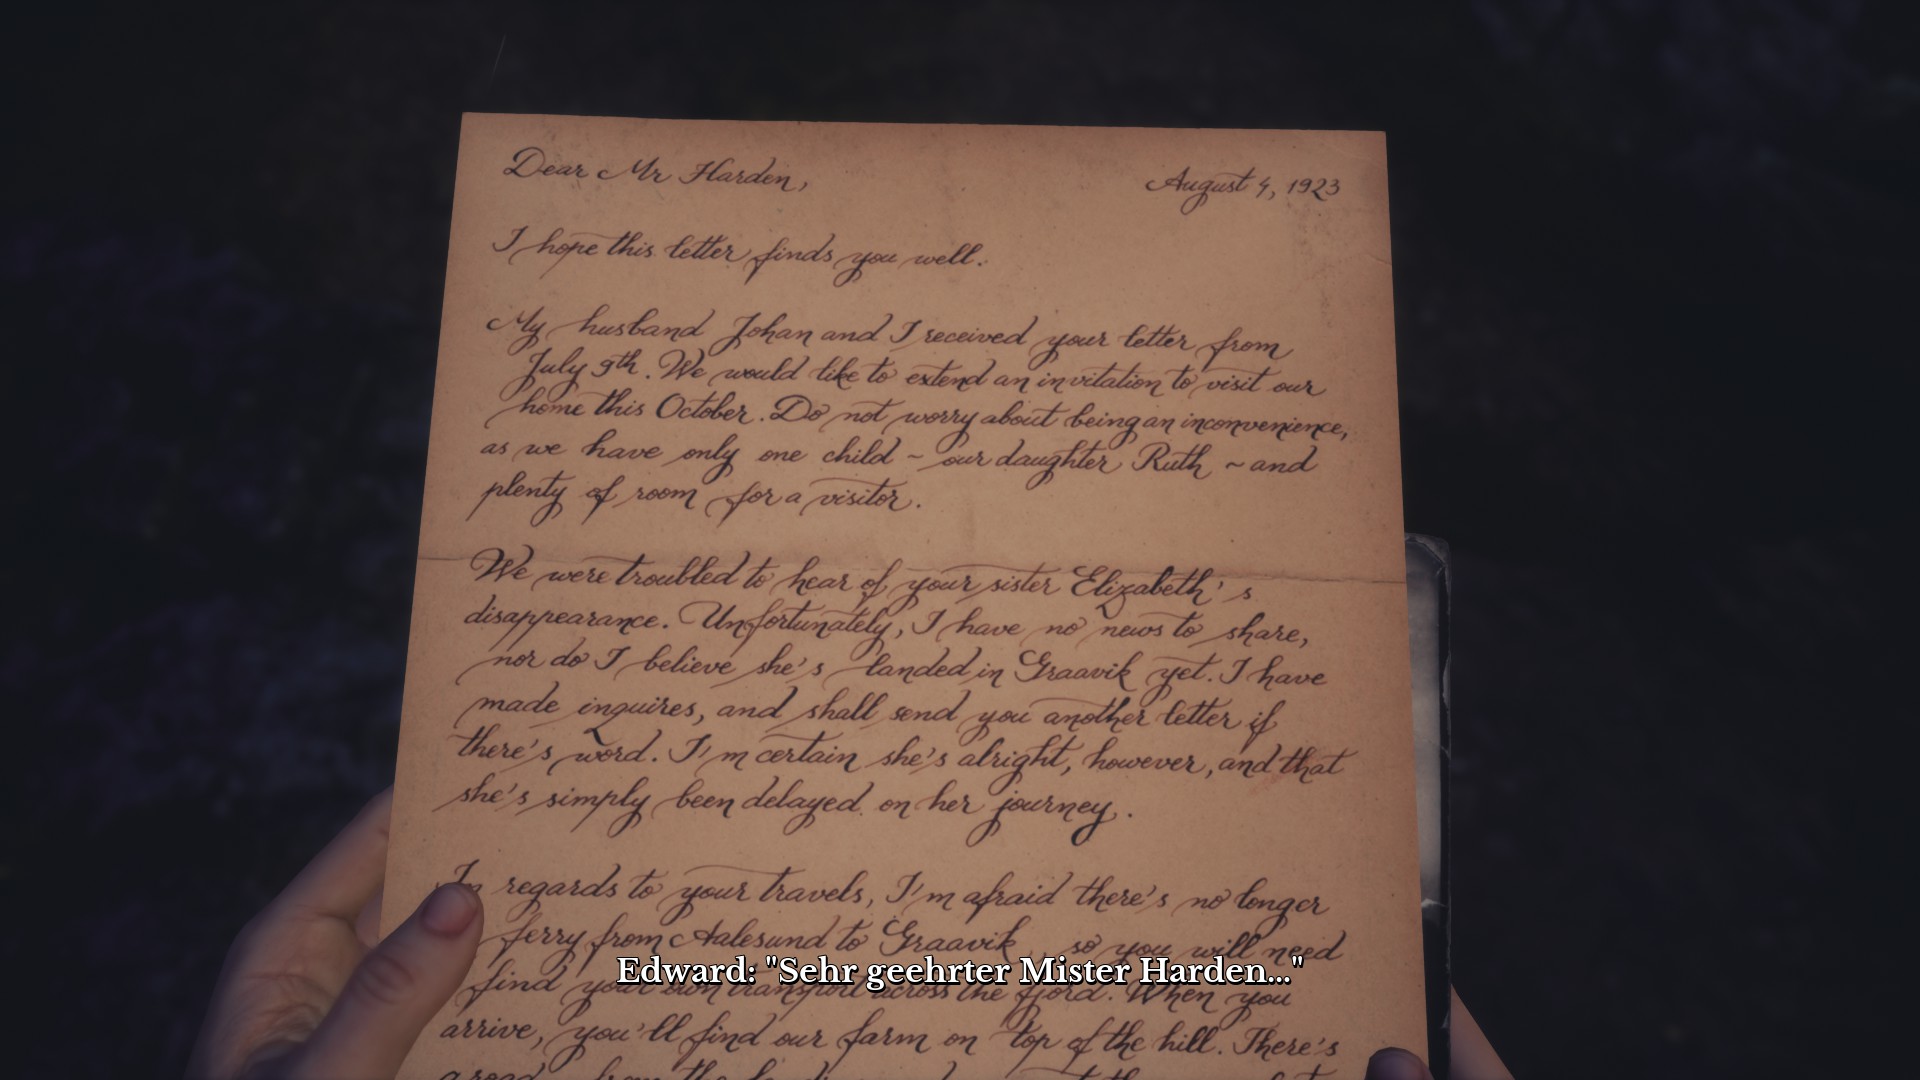 Dear Mr Harden,
August 4, 1923
I hope this letter finds you well.
My husband Johan and I received your letter from
July 9th. We would like to extend an invitation to visit our
home this October. Do not worry about being an inconvenience,
as we have only one child ~ our daughter Ruth ~ and
plenty of room for a visitor.
We were troubled to hear of your sister Elizabeth's
disappearance. Unfortunately, I have no news to share,
nor do I believe she's landed in Graavik yet. I have
made inquires, and shall send you another letter if
there's word. I'm certain she's alright, however, and that
she's simply been delayed on her journey.
In regards to your travels, I'm afraid there's no longer
ferry from Aalesund to Graavik, so you will need
find your own transport across the fjord. When you
arrive, you'll find our farm on top of the hill. There's
a road from the
Edward: "Sehr geehrter Mister Harden..."